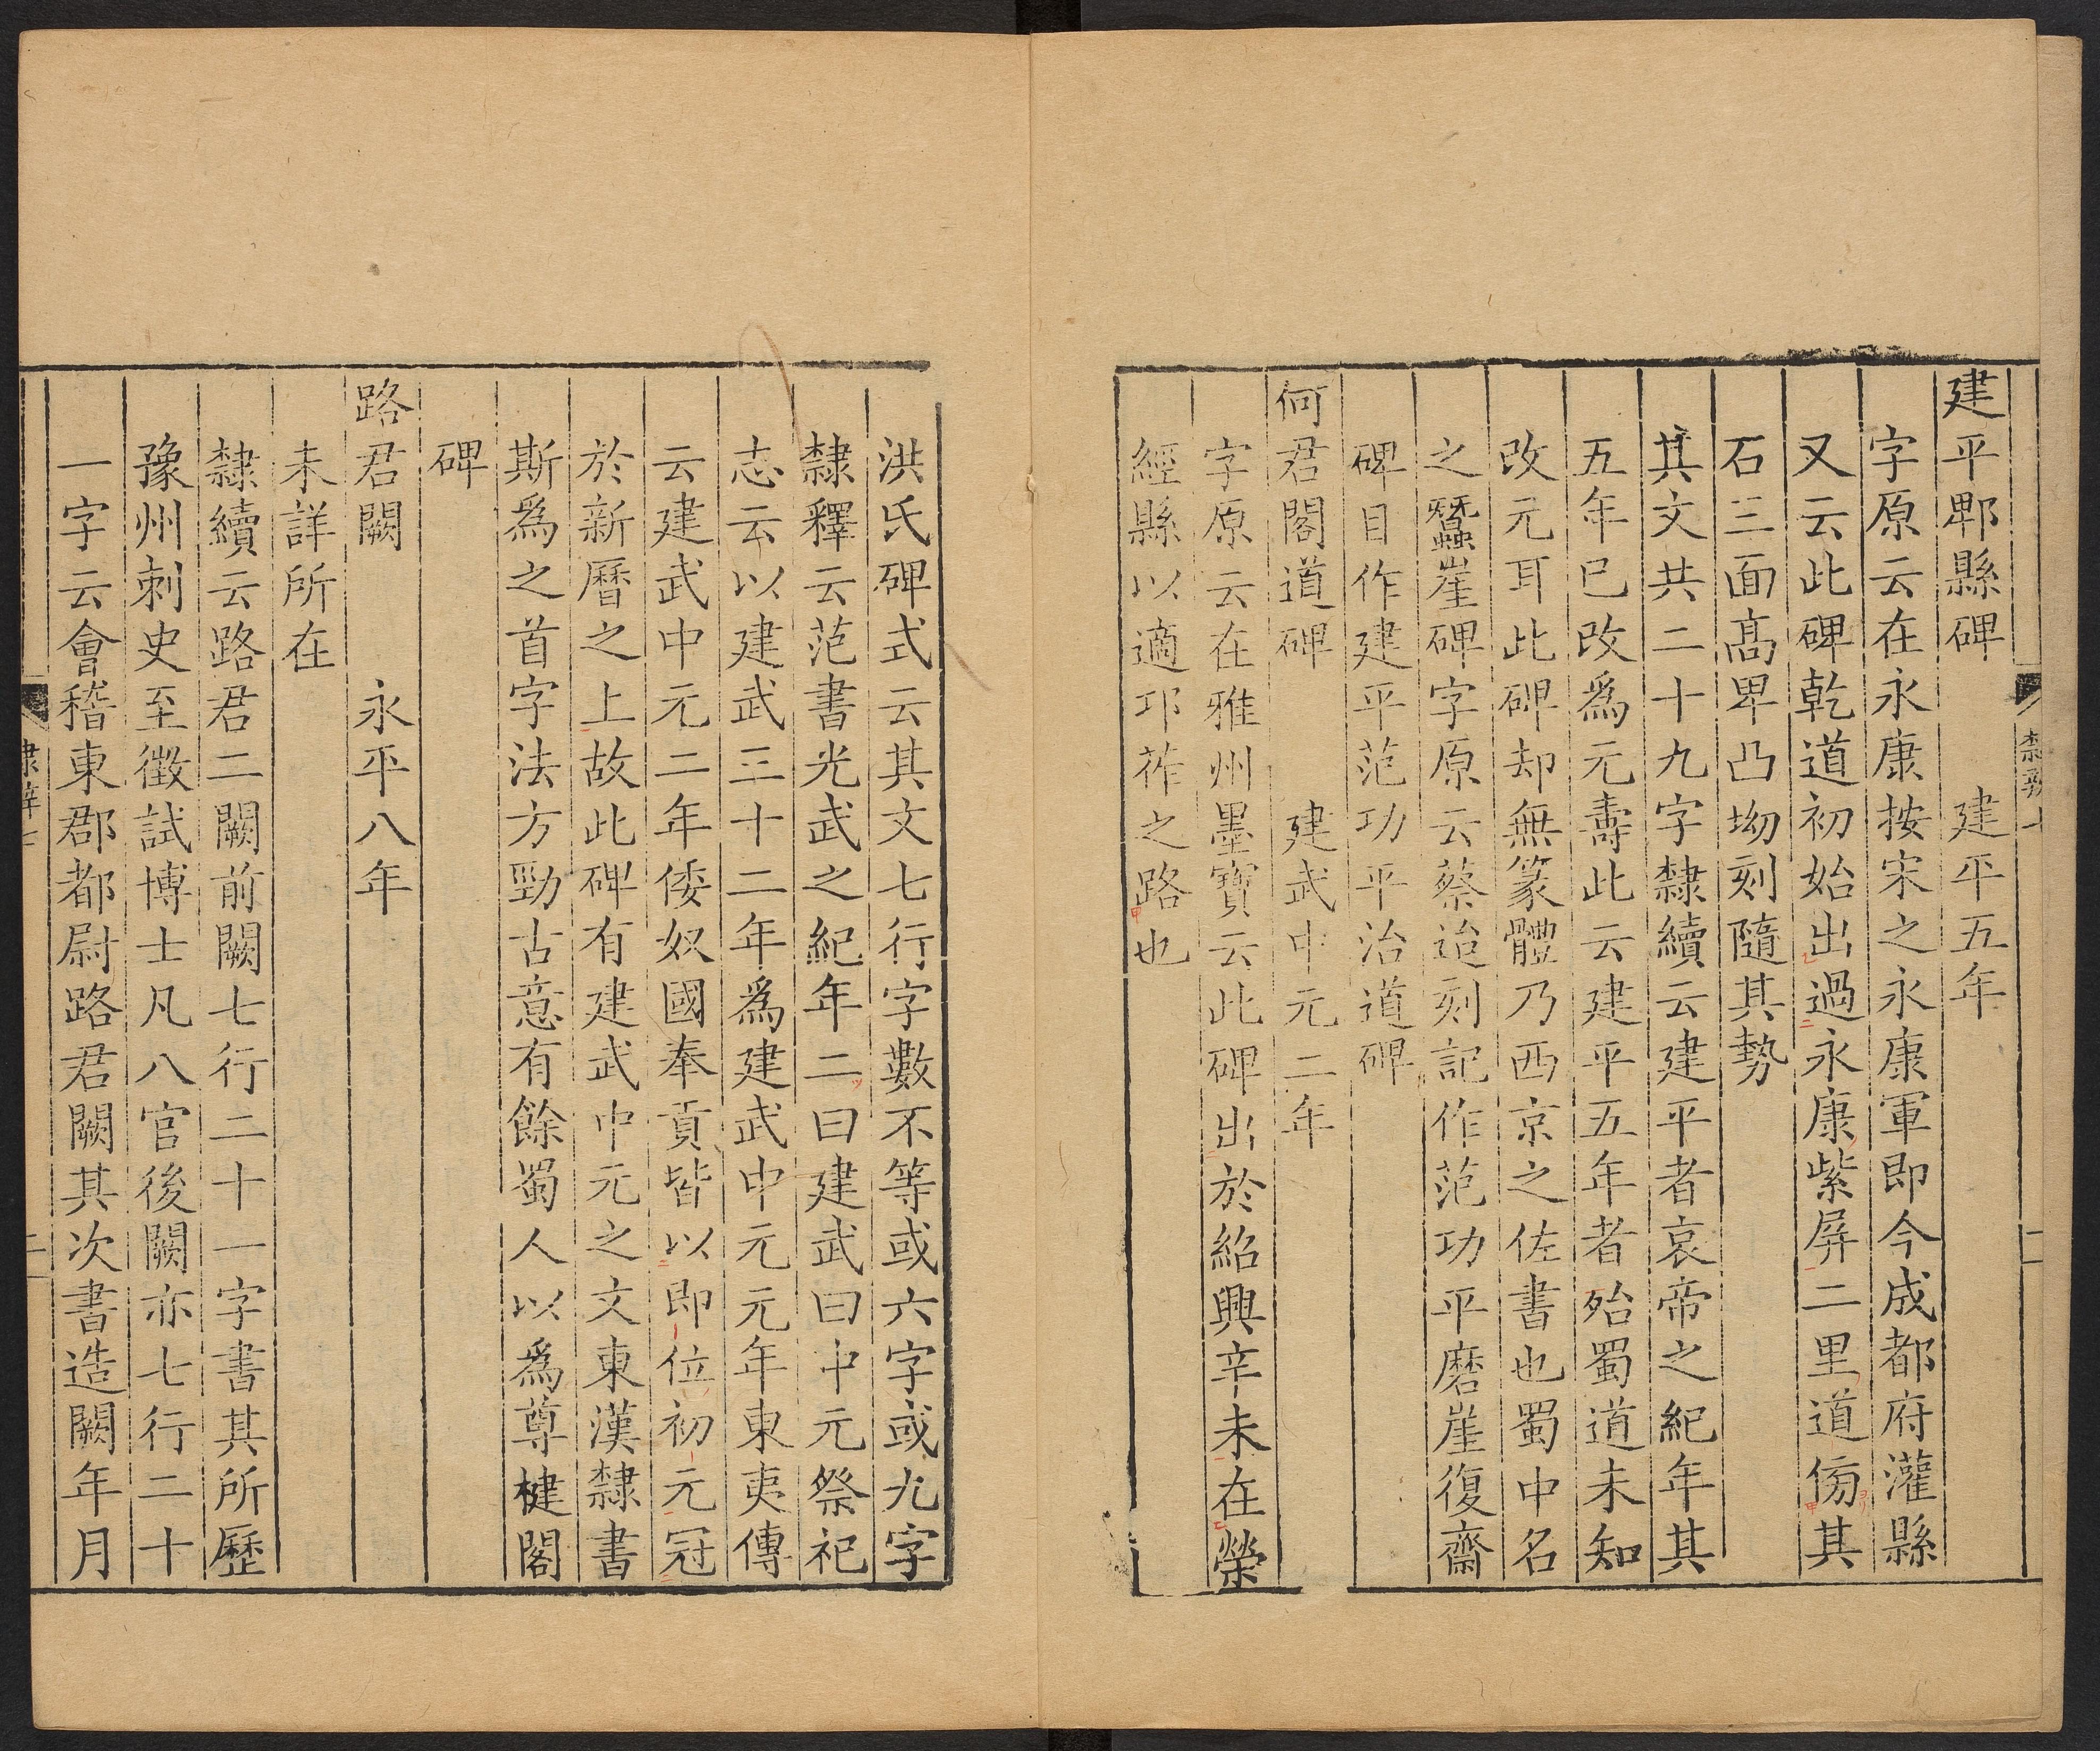 建平郫縣碑　建平五年
字原云在永康按宋之永康軍即今成都府灌縣
又云此碑乾道初始出過永康紫屏二里道傍其
石三面髙卑凸坳刻隨其勢
其文共二十九字隸續云建平者哀帝之紀年其
五年已改爲元壽此云建平五年者殆蜀道未知
改元耳此碑却無篆體乃西京之佐書也蜀中名
之蠶崖碑字原云蔡迨刻記作范功平磨崖復齋
碑目作建平范功平治道碑
何君閣道碑　建武中元二年
字原云在雅州墨寶云此碑出於紹興辛未在榮
經縣以適邛莋之路也
洪氏碑式云其文七行字數不等或六字或九字
隸釋云范書光武之紀年二曰建武曰中元祭祀
志云以建武三十二年爲建武中元元年東夷傳
云建武中元二年倭奴國奉貢皆以即位初元冠
於新曆之上故此碑有建武中元之文東漢隸書
斯爲之首字法方勁古意有餘蜀人以爲尊楗閣
碑
路君闕　永平八年
未詳所在
隸續云路君二闕前闕七行二十一字書其所歷
豫州刺史至徵試博士凡八官後闕亦七行二十
一字云會稽東郡都尉路君闕其次書造闕年月